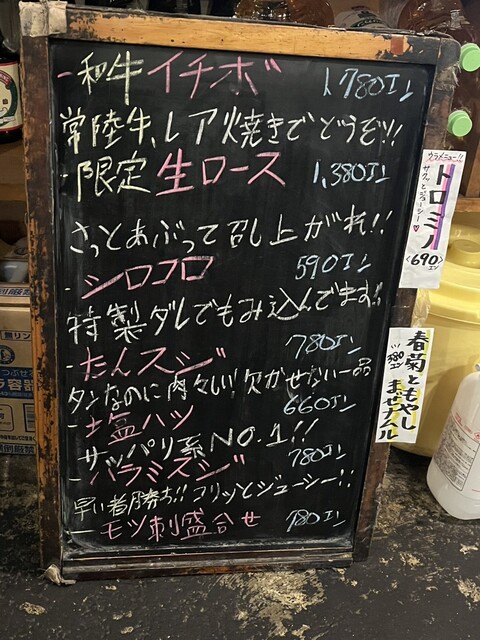 -和牛イチボ 1,780エン
常陸牛、レア焼きでどうぞ!!
-限定生ロース 1,380エン
さっとあぶって召し上がれ!!
-シロコロ 590エン
特製ダレでもみ込んでます!!
-たんスジ 780エン
タンなのに肉々しい!欠かせない一品
-塩ハツ 660エン
サッパリ系NO.1!!
-ハラミスジ 780エン
早い者勝ち!!コリッとジューシー!!
-モツ刺盛合せ 780エン
ウラメニュー!!
トロミノ
サクッとジューシー♥
<690>エン
春菊ともやし
まぜナムル
380エン